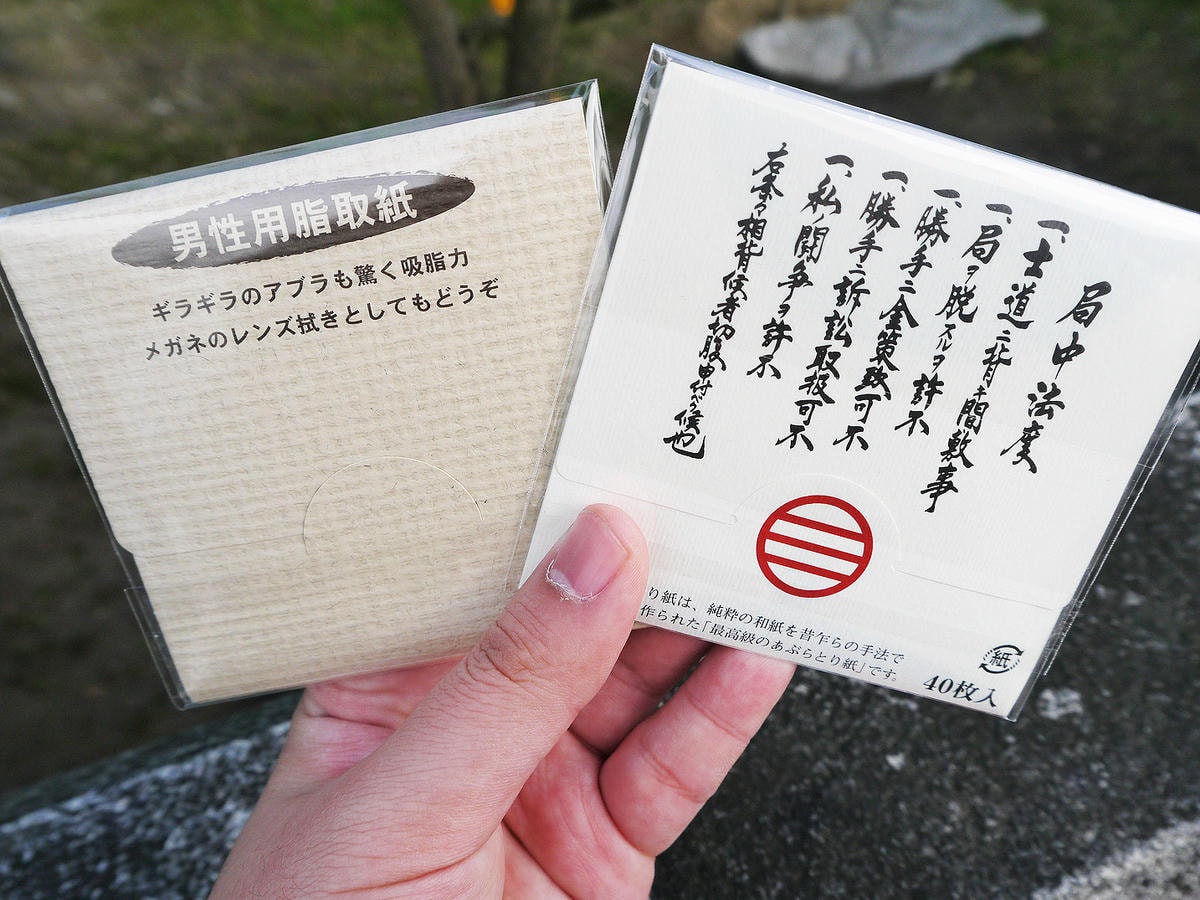 男性用脂取紙
ギラギラのアブラも驚く吸脂力
メガネのレンズ拭きとしてもどうぞ
局中法度
一、士道ニ背キ間敷事
一、局ヲ脱スルヲ許不
一、勝手ニ金策致可不
一、勝手ニ訴訟取扱可不
一、私ノ闘争ヲ許不
右条々相背候者切腹申付ベク候也
り紙は、純粋の和紙を昔乍らの手法で
作られた「最高級のあぶらとり紙」です。
紙
40枚入